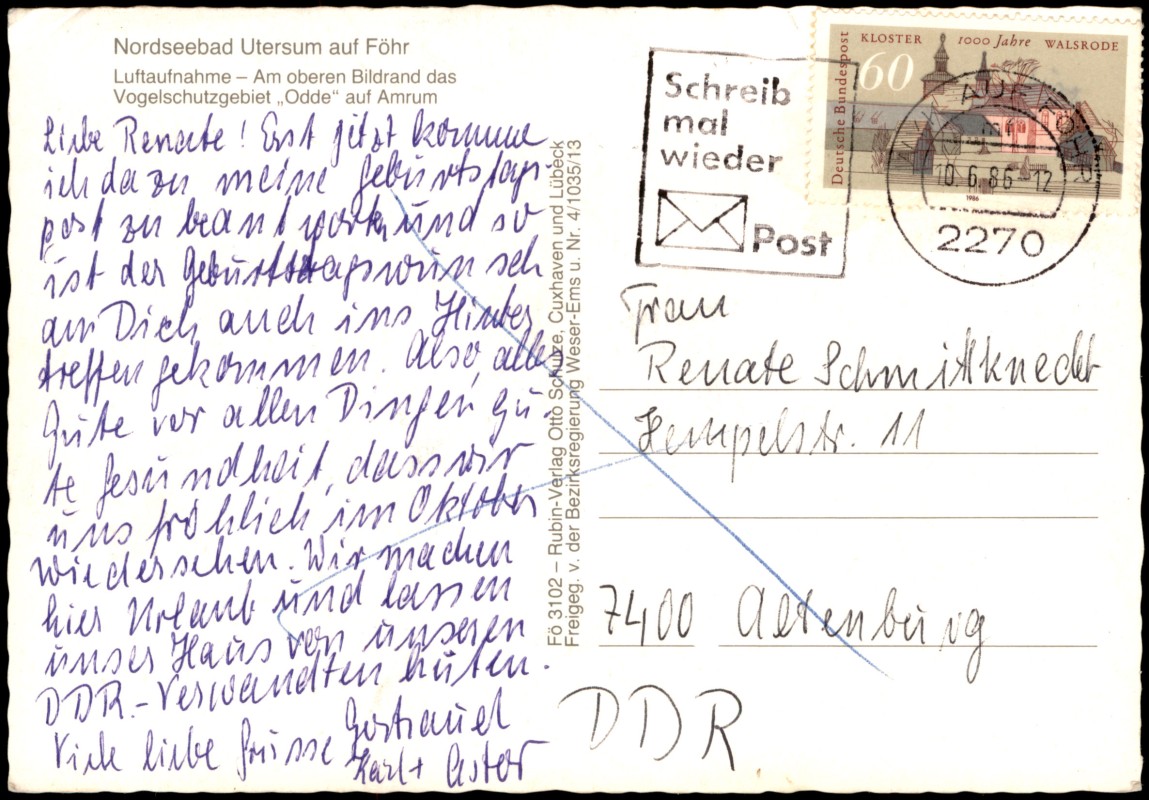 Nordseebad Utersum auf Föhr
Luftaufnahme – Am oberen Bildrand das
Vogelschutzgebiet „Odde" auf Amrum
Liebe Renate! Erst jetzt komme
ich dazu meine Geburtstags-
post zu beantworten und so
ist der Geburtstagswunsch
an Dich auch ins Hinter
treffen gekommen. Also, alles
Gute vor allen Dingen gu-
te Gesundheit, dass wir
uns fröhlich im Oktober
wiedersehen. Wir machen
hier Urlaub und lassen
unser Haus von unseren
DDR.-Verwandten hüten.
Viele liebe Grüsse Gertraud
Karl +
Fö 3102 – Rubin-Verlag Otto Schulze, Cuxhaven und Lübeck
Freigeg. v. der Bezirksregierung Weser-Ems u. Nr. 4/1035/13
Schreib
mal
wieder
Post
Deutsche Bundespost
60
KLOSTER 1000 Jahre WALSRODE
1986
AUF FÖHR
10.6.86-12
2270
Frau
Renate Schmittknecht
Hempelstr. 11
7400 Altenburg
DDR